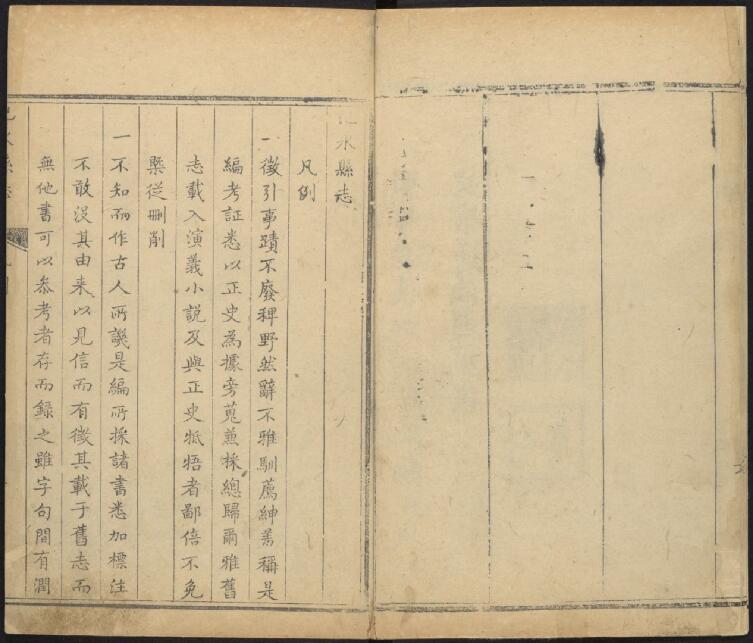 水縣志
凡例
一徵引事蹟不廢稗野然辭不雅馴薦紳羞稱是
編考証悉以正史為據旁蒐兼採總歸爾雅舊
志載入演義小說及與正史牴牾者鄙倍不免
槩從刪削
一不知而作古人所譏是編所採諸書悉加標注
不敢沒其由来以見信而有徵其載于舊志而
無他書可以叅考者存而錄之雖字句間有潤